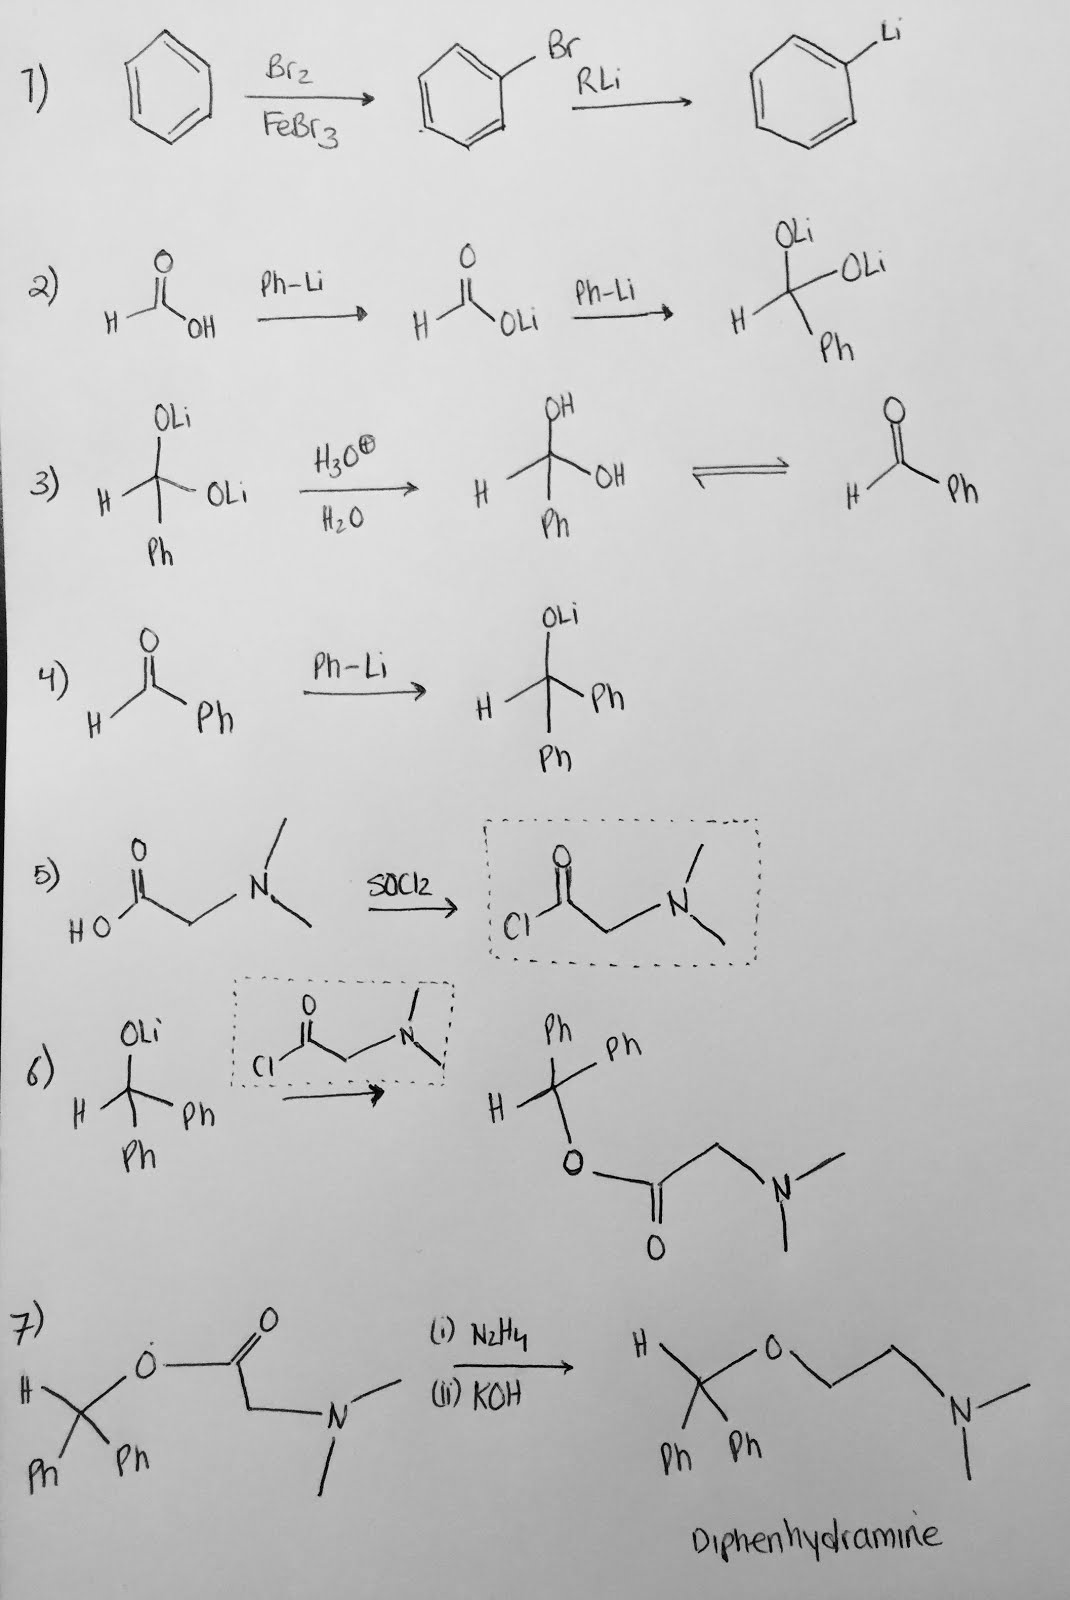 1) Br2 FeBr3 Br RLi Li
2) O H OH Ph-Li O H OLi Ph-Li OLi OLi H Ph
3) OLi H OLi Ph H3O⊕ H2O OH H OH Ph ⇌ O H Ph
4) O H Ph Ph-Li OLi H Ph Ph
5) O HO N SOCl2 O Cl N
6) OLi H Ph Ph O Cl N Ph Ph H O O N
7) H O O Ph Ph N (i) N2H4 (ii) KOH H O Ph Ph N
Diphenhydramine